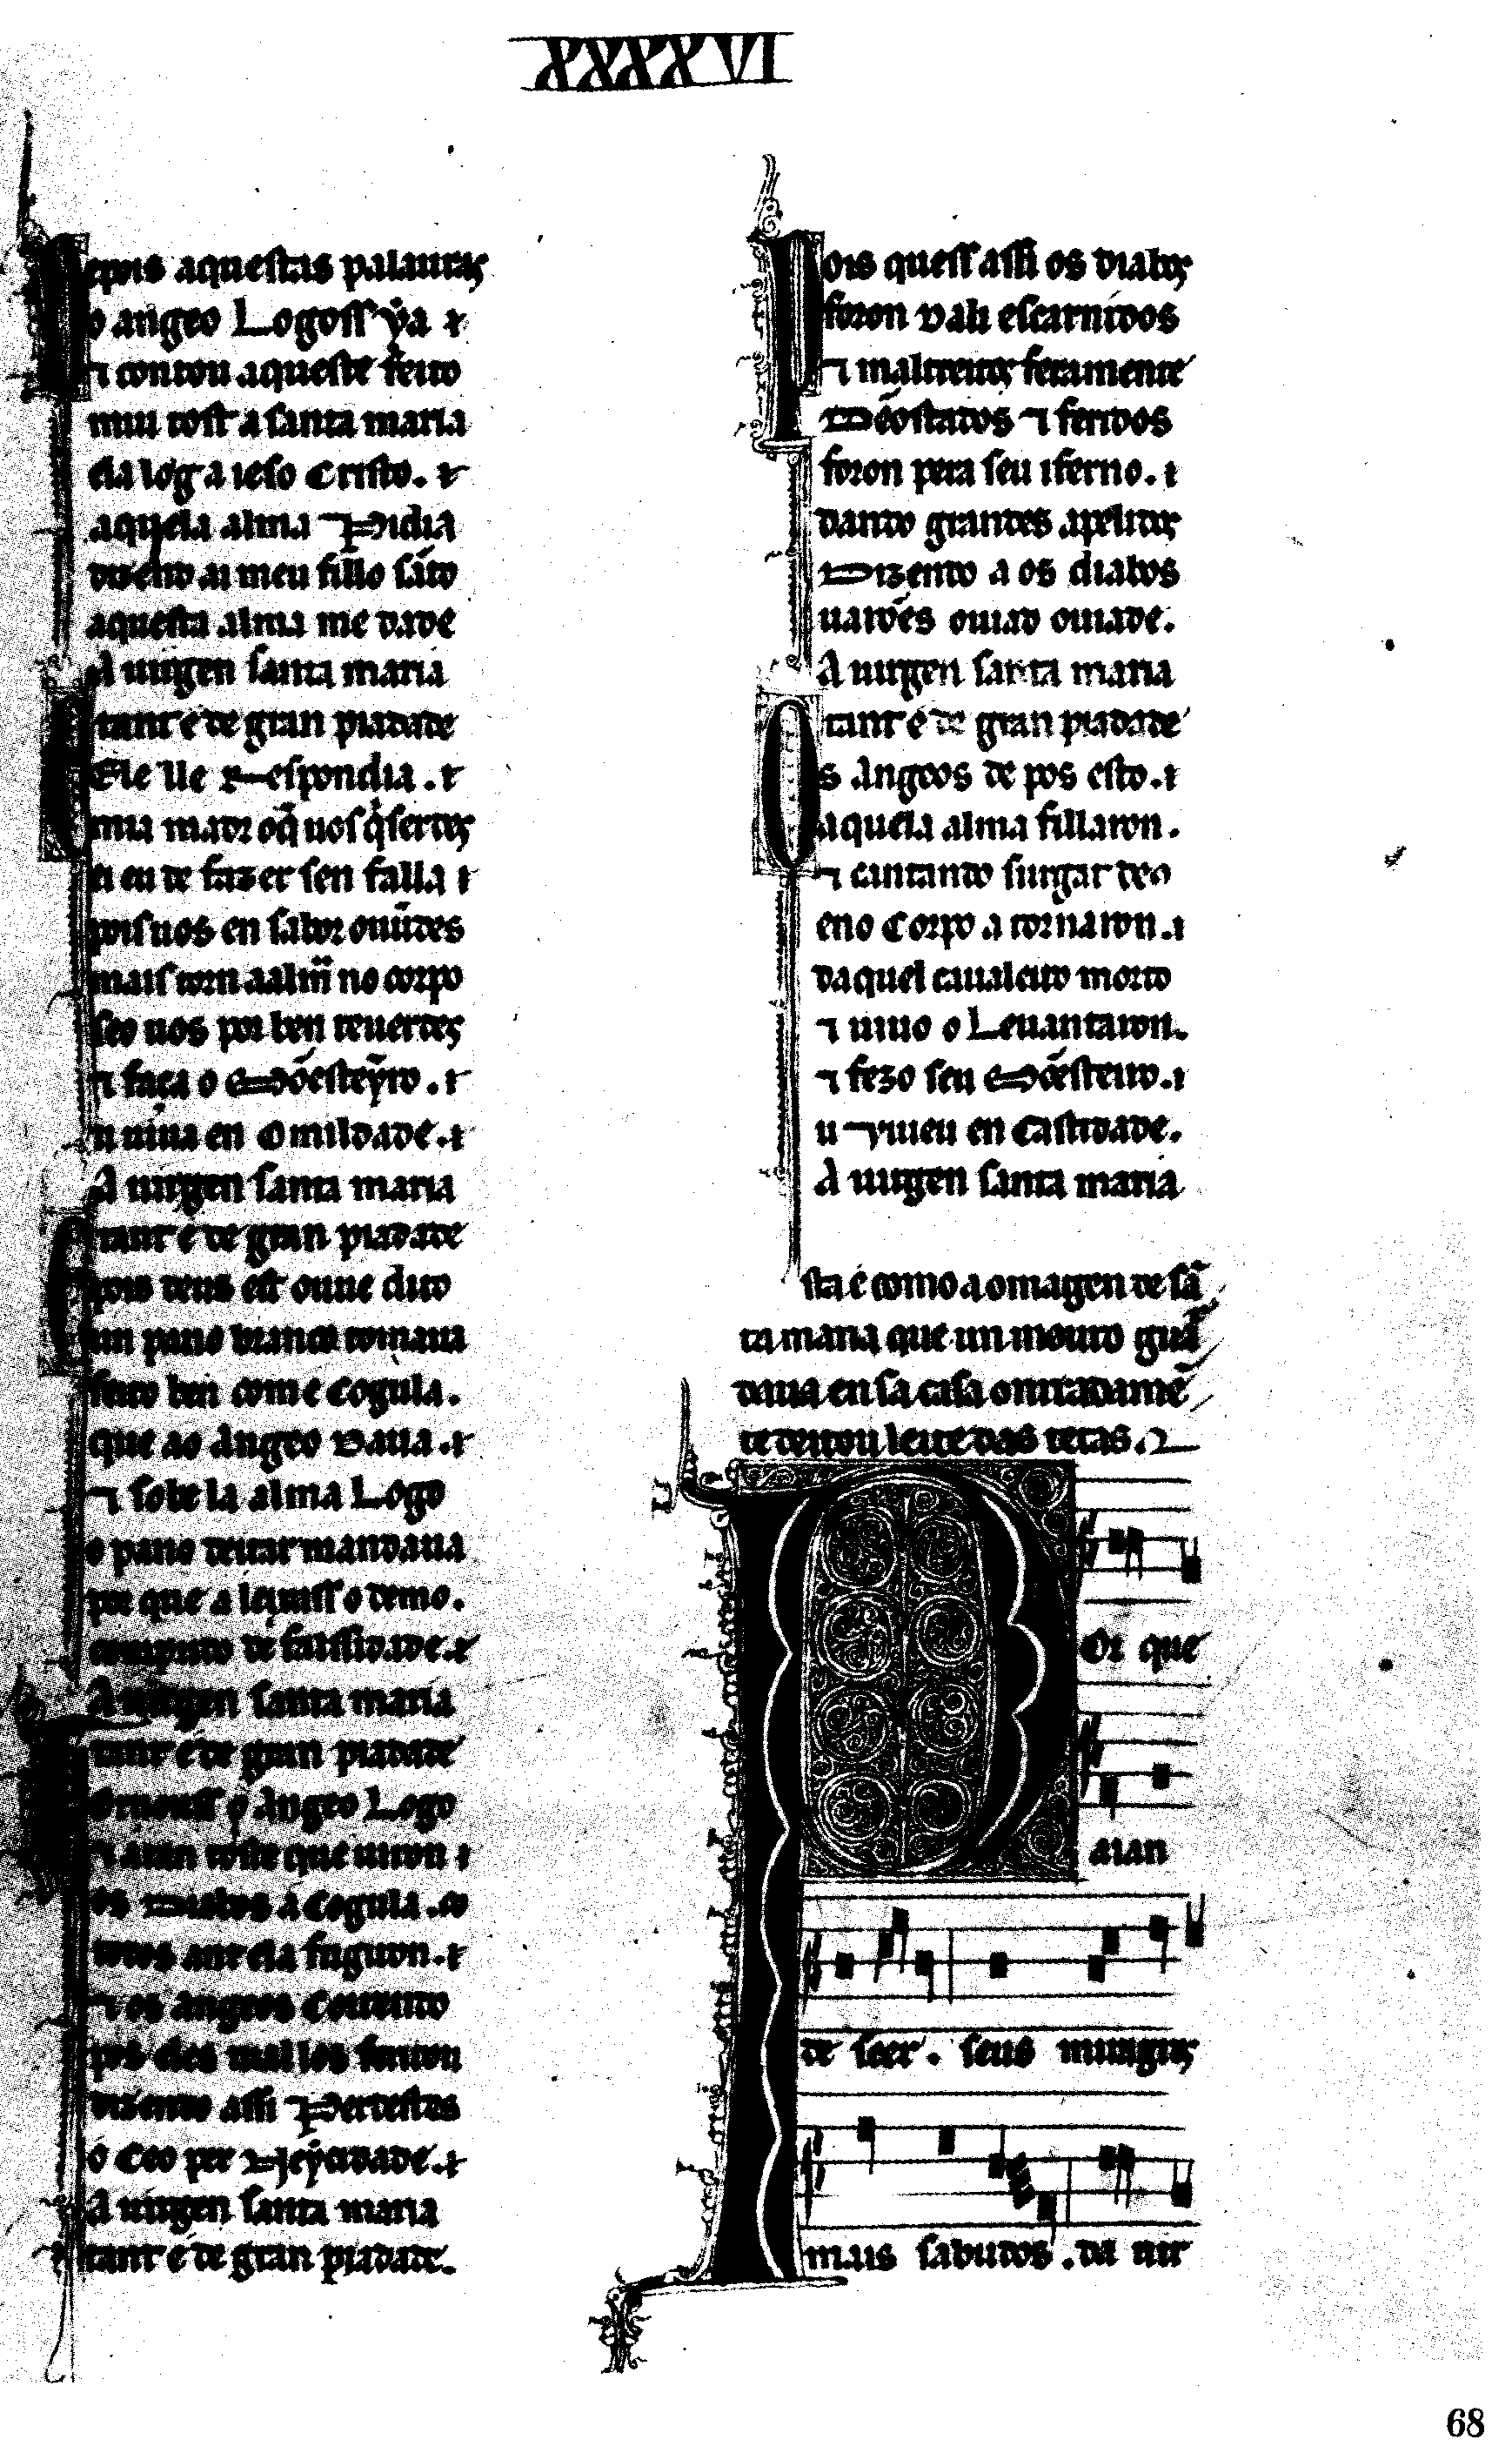 XXXXVI
Depois aquestas palauras
o angeo Logoss ya ⁊
⁊ contou aqueste feito
mui tost a santa maria
ela log a ieso Cristo. ⁊
aquela alma Pidia
dizendo ai meu fillo sãto
aquesta alma me dade
A uirgen santa maria
tant é de gran piadade
Ele lle Respondia. ⁊
mia madr o q̃ uos q̇serdes
ei eu de fazer sen falla ⁊
pois uos en sabor ouuṽdes
mais torn a alm̃ no corpo
seo uos por ben teuerdes
⁊ faça o Mõesteyro. ⁊
u uiua en Omildade. ⁊
A uirgen santa maria
tant é de gran piadade
pois deus est ouue dito
un pano branco tomaua
feito ben come Cogula.
que ao Angeo Daua. ⁊
⁊ sobe la alma Logo
o pano deitar mandaua
por que a leixass o demo.
comprido de falssidade. ⁊
A uirgen santa maria
tant é de gran piadade
Tornouss o Angeo Logo
⁊ atan toste que uiron ⁊
os Diabos a Cogula. co
todos ant ela fugiron. ⁊
⁊ os angeos Correndo
pos eles mal los feriron
dizendo assi Perdestes
o Ceo per Neycidade. ⁊
A uirgen santa maria
tant é de gran piadade.
Pois quess assi os diabos
foron Dali escarnidos
⁊ maltreitos feramente
Dẽostados ⁊ feridos
foron pera seu iferno. ⁊
dando grandes apelidos
Dizendo a os diabos
uarões ouiad ouiade.
A uirgen santa maria
tant é de gran piadade
Os Angeos de pos esto. ⁊
aquela alma fillaron.
⁊ cantando surgat deo
eno Corpo a tornaron. ⁊
daquel caualeiro morto
⁊ uiuo o Leuantaron.
⁊ fezo seu Mõesteiro. ⁊
u ⁊ uiueu en Castidade.
A uirgen santa maria
sta é como a omagen de sã
ta maria que un mouro guar
daua en sa casa onrradamẽ
te deitou leite das tetas.
Por que
aian
de seer. seus miragres
mais sabudos. da uir
68